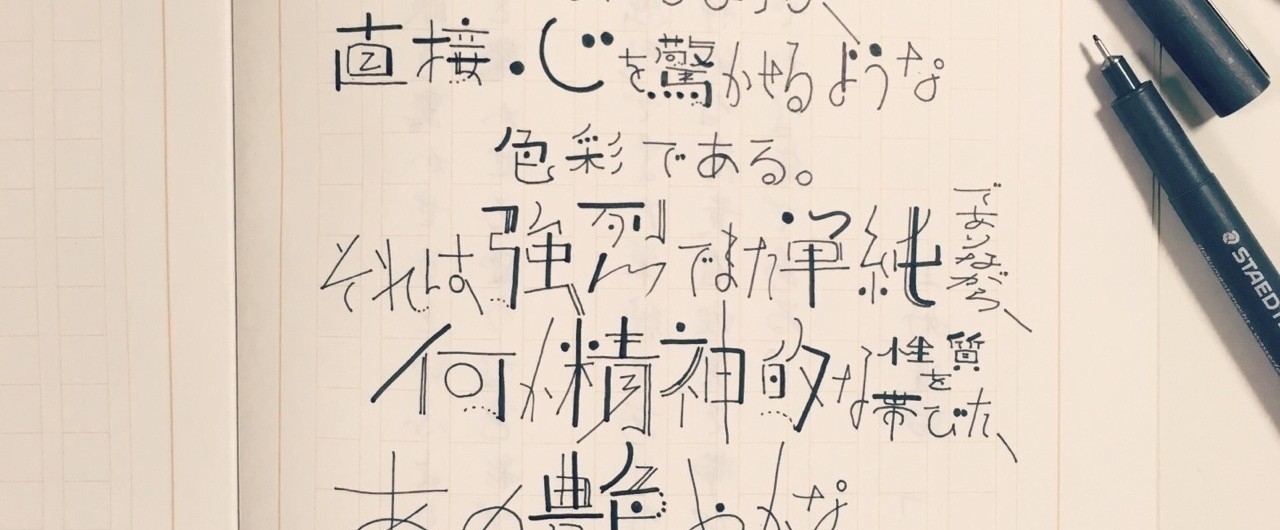 直接心を驚かせるような
色彩である。
それは強烈でまた単純でありながら、
何か精神的な性質を帯びた、
あの艶やかな
STAEDT